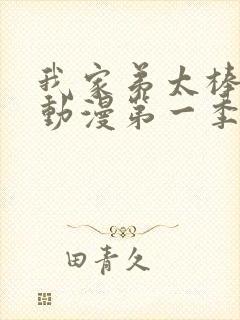 我家弟太棒
動漫第一季
田青久